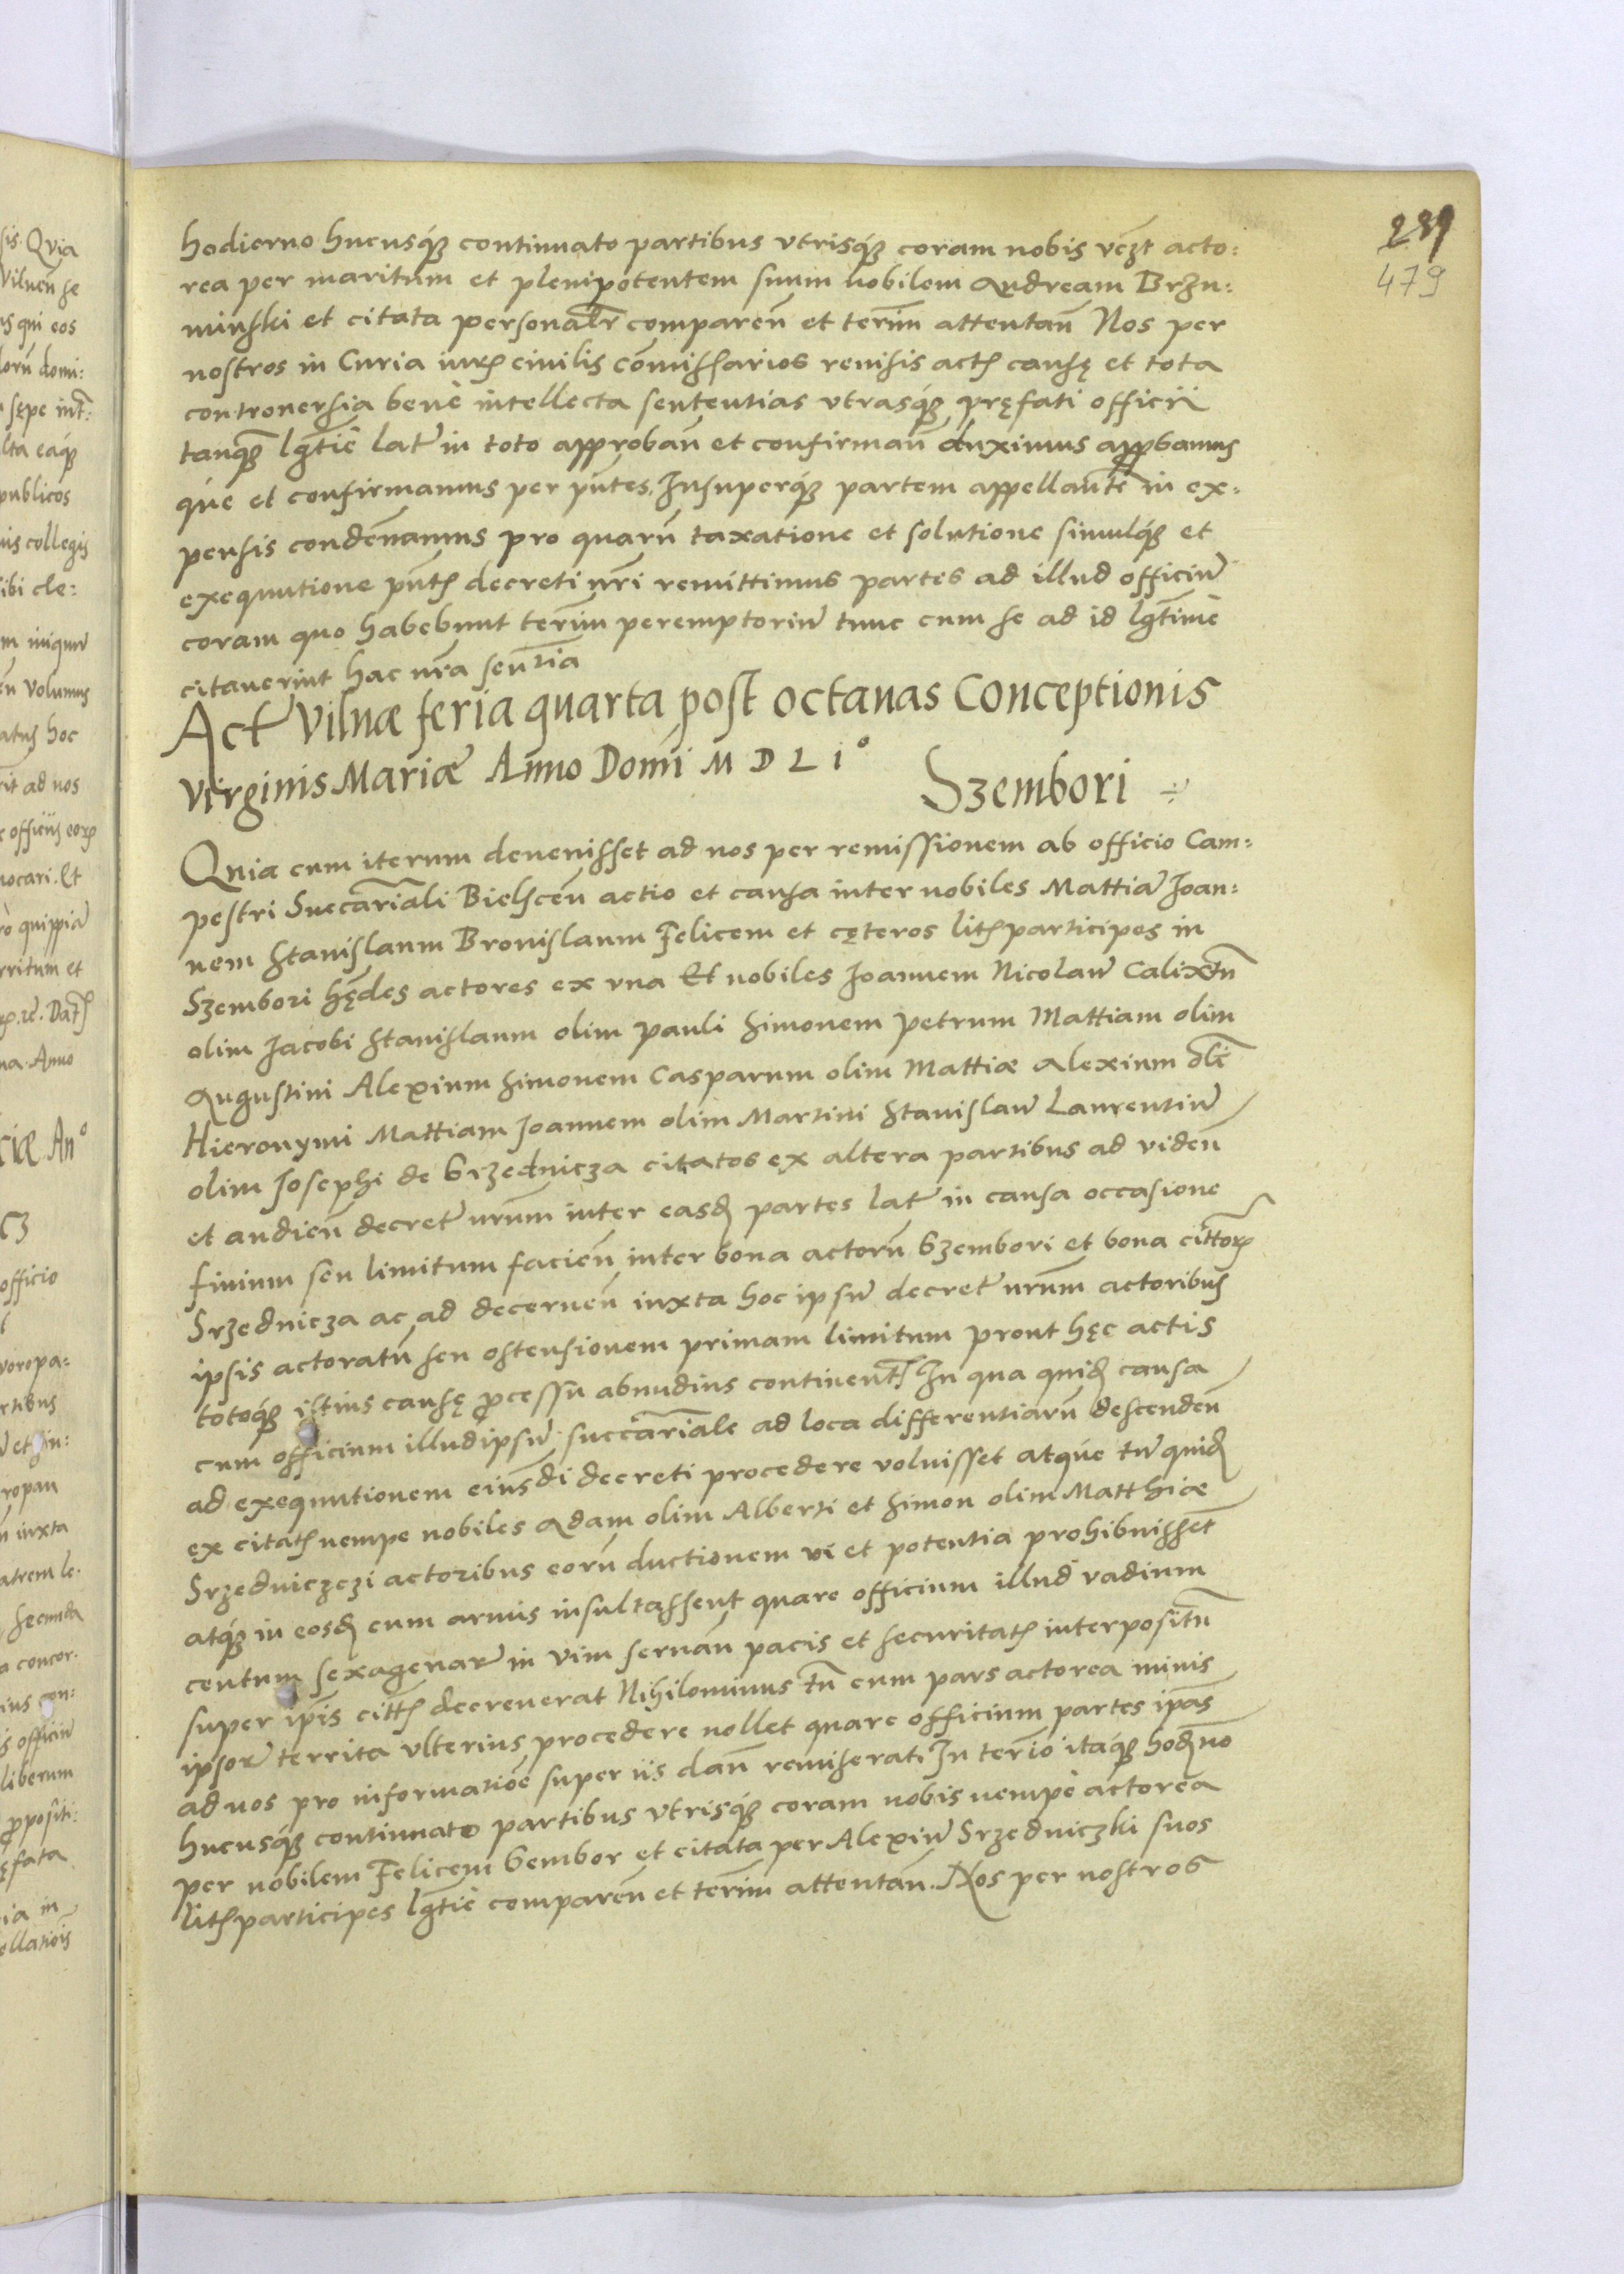 239
479
hodierno hucusq́ꝫ continuato partibus vtrisq́ꝫ coram nobis vcꝫt acto:
rea per maritum et plenipotentem suum nobilem Andream Brzu:
minski et citata personalr̄ comparen̄ et term̄ attentan̄ Nos per
nostros in Curia iur̄ ciuilis cōmissarios reuisis act̄ causę et tota
controuersia bene intellecta sententias vtrasq́ꝫ pręfati officii
tanq̄ꝫ lgt̄ie lat̄ in toto approban̄ et confirman̄ duximus app̱bamus
que et confirmamus per pn̄tes. Insuperq́ꝫ partem appellantē in ex:
pensis condēnamus pro quarū taxatione et solutione simulq́ꝫ et
exequutione pn̄t̄ decreti nr̄i remittimus partes ad illud officiū
coram quo habebunt term̄ peremptoriū tunc cum se ad id lgt̄ime
citauerint hac nr̄a sen̄tia
Act̄ Vilnæ feria quarta post octauas Conceptionis
Virginis Mariæ Anno Domī M D L I°
Szembori ÷
Quia cum iterum deuenisset ad nos per remissionem ab officio Cam:
pestri Succar̄iali Bielscen̄ actio et causa inter nobiles Mattiā Ioan:
nem Stanislaum Bronislaum Felicem et cęteros lit̄ participes in
Szembori hędes actores ex vna Et nobiles Joannem Nicolaū Calixtū
olim Jacobi Stanislaum olim Pauli Simonem Petrum Mattiam olim
Augustini Alexium Simonem Casparum olim Mattiæ Alexium olī
Hieronymi Mattiam Joannem olim Martini Stanislaū Laurentiū
olim Josephi de Srzednicza citatos ex altera partibus ad viden̄
et audien̄ decret̄ nr̄um inter easd̄ partes lat̄ in causa occasione
finium seu limitum facien̄ inter bona actorū Szembori et bona cittor̄
Srzednicza ac ad decernen̄ iuxta hoc ipsū decret̄ nr̄um actoribus
ipsis actoratū seu ostensionem primam limitum prout hęc actis
totoq́ꝫ istius causę p̱cessu abundius continent̄ In qua quid̄ causa
cum officium illud ipsū succar̄iale ad loca differentiarū descenden̄
ad exequutionem eiusdi decreti procedere voluisset atque tū quid̄
ex citat̄ nempe nobiles Adam olim Alberti et Simon olim Matthiæ
Srzedniczczi actoribus eorū ductionem vi et potentia prohibuisset
atq́ꝫ in eosd̄ cum armis insultassent quare officium illud vadium
centum sexagenar̄ in vim seruan̄ pacis et securitat̄ interpositū
super ip̄is citt̄ decreuerat Nihilominus tn̄ cum pars actorea minis
ipsor̄ territa vlterius procedere nollet quare officium partes ip̄as
ad nos pro informatiōe super iis dan̄ remiserat In term̄o itaq́ꝫ hod̄no
hucusq́ꝫ continuato partibus vtrisq́ꝫ coram nobis nempe actorea
per nobilem Felicem Sembor et citata per Alexiū Srzedniczki suos
lit̄ participes lgt̄ie comparen̄ et term̄ attentan̄. Nos per nostros